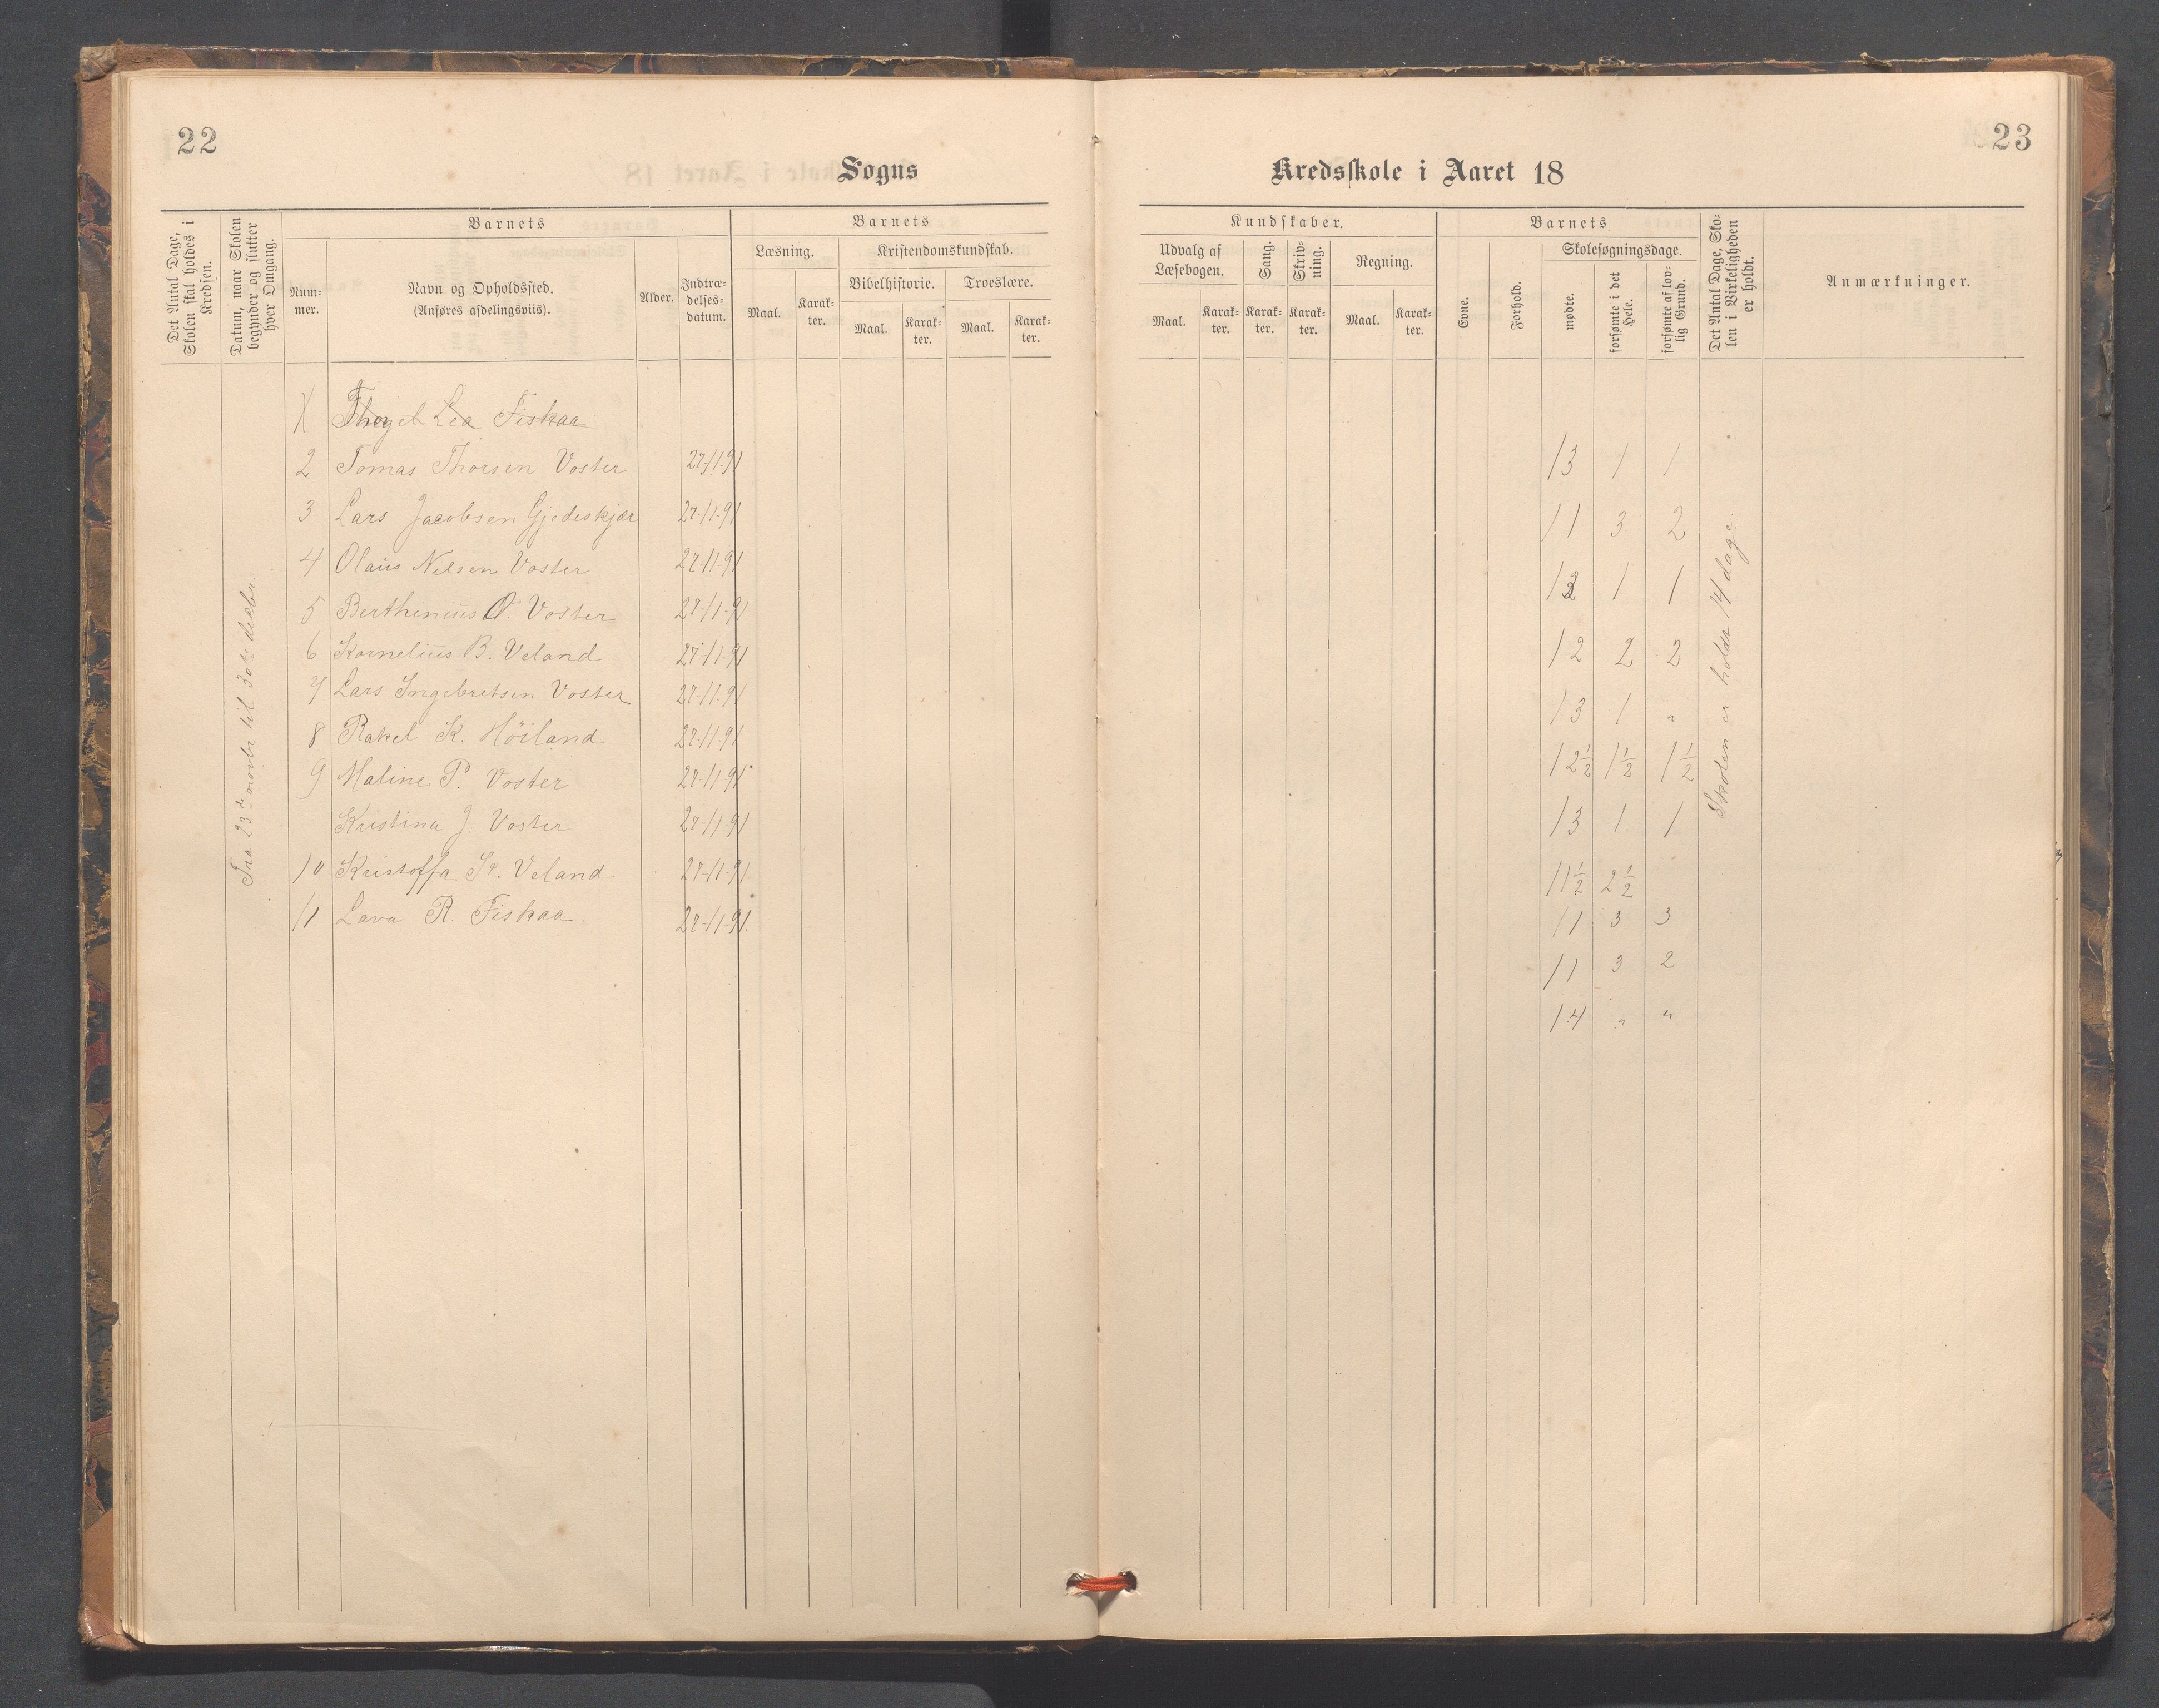 22
Sogns
Det Antal Dage, Skolen skal holdes i Kredsen.
Datum, naar Skolen begynder og slutter hver Omgang.
Barnets
Num-
mer.
Navn og Opholdssted.
(Anføres afdelingsviis).
Alder.
Indtræ-
delses-
datum.
Barnets
Læsning.
Maal.
Karak-
ter.
Kristendomskundskab.
Bibelhistorie.
Troeslære.
Maal.
Karak-
ter.
Maal.
Karak-
ter.
Fra 23de novbr til 30te decbr
Fiskaa
2 Tomas Thorsen Voster 27-11-91
3 Lars Jacobsen Gjedeskjær 27-11-91
4 Olaus Nelsen Voster 27-11-91
5 Berthinius O. Voster 27-11-91
6 Kornelius B. Veland 27-11-91
7 Lars Ingebretsen Voster 27-11-91
8 Rakel K. Höiland 27-11-91
9 Maline P. Voster 27-11-91
Kristina J. Voster 27-11-91
10 Kristoffa Veland 27-11-91
11 Lava R Fiskaa 27-11-91.
23
Kredsskole i Aaret 18
Kundskaber.
Udvalg af
Læsebogen.
Maal.
Karak-
ter.
Sang.
Karak-
ter.
Skriv-
ning.
Karak-
ter.
Regning.
Maal.
Karak-
ter.
Barnets
Evne.
Forhold.
Skolesøgningsdage.
mødte.
forsømte i det Hele.
forsømte af lov-
lig Grund.
Det Antal Dage, Sko-
len i Virkeligheden
er holdt.
Anmærkninger.
13 1 1
11 3 2
13 1 1
12 2 2
13 1 "
12½ 1½ 1½
13 1 1
11½ 2½
11 3 3
11 3 2
14 " "
Skolen er holdt 14 dage.